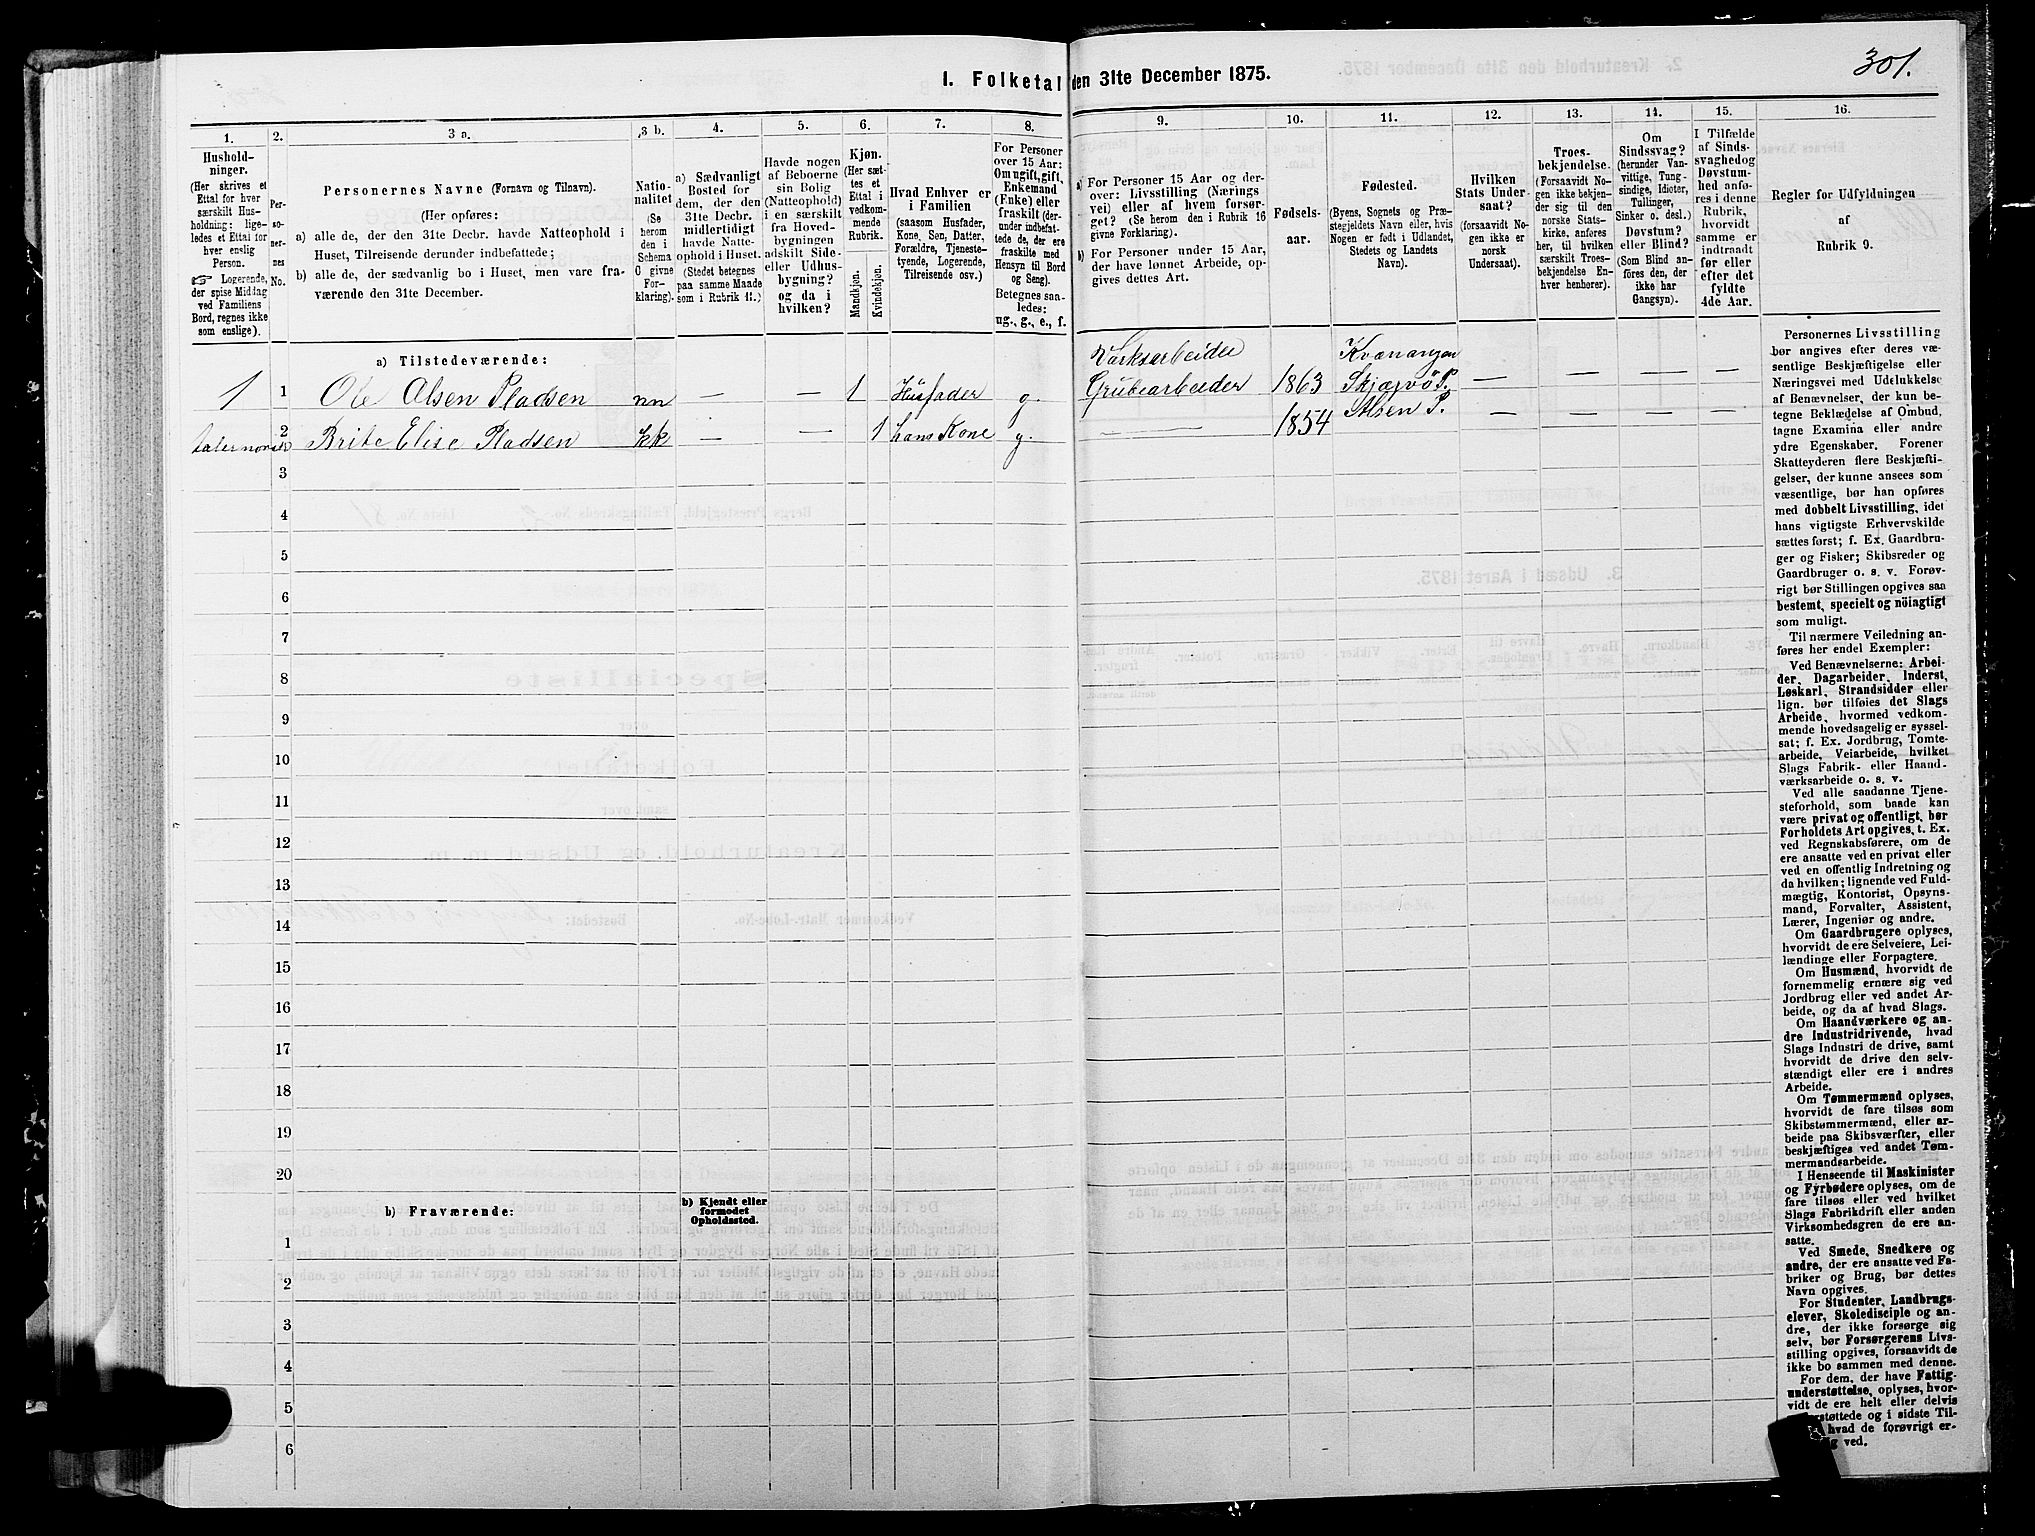 301.
I. Folketal den 31te December 1875.
1.
Hushold-
ninger.
(Her skrives et
Ettal for hver
særskilt Hus-
holdning: lige-
ledes et Ettal for
hver enslig
Person.
☞ Logerende,
der spise Middag
ved Familiens
Bord, regnes ikke
som enslige).
2.
Per-
so-
ner-
nes
No.
3 a.
Personernes Navne (Fornavn og Tilnavn).
(Her opføres:
a) alle de, der den 31te Decbr. havde Natteophold i
Huset, Tilreisende derunder indbefattede;
b) alle de, der sædvanlig bo i Huset, men vare fra-
værende den 31te December.
3 b.
Natio-
nalitet
(Se
herom
den i
Schema
C givne
For-
klaring).
4.
a) Sædvanligt
Bosted for
dem, der den
31te Decbr.
midlertidigt
havde Natte-
ophold i Huset.
(Stedet betegnes
paa samme Maade
som i Rubrik 11.)
5.
Havde nogen
af Beboerne
sin Bolig
(Natteophold)
i en særskilt
fra Hoved-
bygningen
adskilt Side-
eller Udhus-
bygning?
og da i
hvilken?
6.
Kjøn.
(Her sæt-
tes et
Ettal i
vedkom-
mende
Rubrik.
Mandkjøn.
Kvindekjøn.
7.
Hvad Enhver er
i Familien
(saasom Husfader,
Kone, Søn, Datter,
Forældre, Tjeneste-
tyende, Logerende,
Tilreisende osv.)
8.
For Personer
over 15 Aar:
Om ugift, gift,
Enkemand
(Enke) eller
fraskilt (der-
under indbefat-
tede de, der ere
fraskilte med
Hensyn til Bord
og Seng).
Betegnes saa-
ledes:
ug., g., e., f.
9.
a) For Personer 15 Aar og der-
over: Livsstilling (Nærings-
vei) eller af hvem forsør-
get? (Se herom den i Rubrik 16
givne Forklaring).
b) For Personer under 15 Aar,
der have lønnet Arbeide, op-
gives dettes Art.
10.
Fødsels-
aar.
11.
Fødested.
(Byens, Sognets og Præ-
stegjeldets Navn eller, hvis
Nogen er født i Udlandet,
Stedets og Landets
Navn).
12.
Hvilken
Stats Under-
saat?
(forsaavidt No-
gen ikke er
norsk
Undersaat).
13.
Troes-
bekjendelse.
(Forsaavidt No-
gen ikke bekjen-
der sig til den
norske Stats-
kirke, anføres
her, til hvilken
særskilt Troes-
bekjendelse En-
hver henhører).
14.
Om
Sindssvag?
(herunder Van-
vittige, Tung-
sindige, Idioter,
Tullinger,
Sinker o. desl.)
Døvstum?
eller Blind?
(Som Blind an-
føres den, der
ikke har
Gangsyn).
15.
I Tilfælde
af Sinds-
svaghed og
Døvstum-
hed anfø-
res i denne
Rubrik,
hvorvidt
samme er
indtraadt
før eller
efter det
fyldte
4de Aar.
16.
Regler for Udfyldningen
af
Rubrik 9.
a) Tilstedeværende:
Værksarbeider Kvænangen
1 1 Ole Olsen Pladsen nn — — 1 Husfader g. Grubearbeider 1863 Skjærvö P. — — — —
taler norsk 2 Brite Elise Pladsen kk — — 1 hans Kone g. — 1854 Alsen P. — — — —
3
4
5
6
7
8
9
10
11
12
13
14
15
16
17
18
19
20
b) Fraværende:
b) Kjendt eller
formodet
Opholdssted.
1
2
3
4
5
6
Personernes Livsstilling
bør angives efter deres væ-
sentlige Beskjæftigelse eller
Næringsvei med Udelukkelse
af Benævnelser, der kun be-
tegne Beklædelse af Ombud,
tagne Examina eller andre
ydre Egenskaber. Forener
Skatteyderen flere Beskjæfti-
gelser, der kunne ansees som
væsentlige, bør han opføres
med dobbelt Livsstilling, idet
hans vigtigste Erhvervskilde
sættes først; f. Ex. Gaardbru-
ger og Fisker; Skibsreder og
Gaardbruger o. s. v. Forøv-
rigt bør Stillingen opgives saa
bestemt, specielt og nöiagtigt
som muligt.
Til nærmere Veiledning an-
føres her endel Exempler:
Ved Benævnelserne: Arbei-
der, Dagarbeider, Inderst,
Løskarl, Strandsidder eller
lign. bør tilføies det Slags
Arbeide, hvormed vedkom-
mende hovedsagelig er syssel-
sat; f. Ex. Jordbrug, Tomte-
arbeide, Veiarbeide, hvilket
Slags Fabrik- eller Haand-
værksarbeide o. s. v.
Ved alle saadanne Tjene-
steforhold, som baade kan
være privat og offentligt, bør
Forholdets Art opgives, t. Ex.
ved Regnskabsførere, om de
ere ansatte ved en privat eller
ved en offentlig Indretning og
da hvilken; lignende ved Fuld-
mægtig, Kontorist, Opsyns-
mand, Forvalter, Assistent,
Lærer, Ingeniør og andre.
Om Gaardbrugere oplyses,
hvorvidt de ere Selveiere, Lei-
lændinge eller Forpagtere.
Om Husmænd, hvorvidt de
fornemmelig ernære sig ved
Jordbrug eller ved andet Ar-
beide, og da af hvad Slags.
Om Haandværkere og an-
dre Industridrivende, hvad
Slags Industri de drive, samt
hvorvidt de drive den selv-
stændigt eller ere i andres
Arbeide.
Om Tømmermænd oplyses,
hvorvidt de fare tilsøs som
Skibstømmermænd, eller ar-
beide paa Skibsværfter, eller
beskjæftiges ved andet Tøm-
mermandsarbeide.
I Henseende til Maskinister
og Fyrbødere oplyses, om de
fare tilsøs eller ved hvilket
Slags Fabrikdrift eller anden
Virksomhedsgren de ere an-
satte.
Ved Smede, Snedkere og
andre, der ere ansatte ved Fa-
briker og Brug, bør dettes
Navn opgives.
For Studenter, Landbrugs-
elever, Skoledisciple og an-
dre, der ikke forsørge sig
selv, bør Forsørgerens Livs-
stilling opgives, forsaavidt de
ikke bo sammen med denne.
For dem, der have Fattig-
understøttelse, oplyses, hvor-
vidt de ere helt eller delvis
støttede og i sidste Til-
hvad de forøvrigt er-
ved.